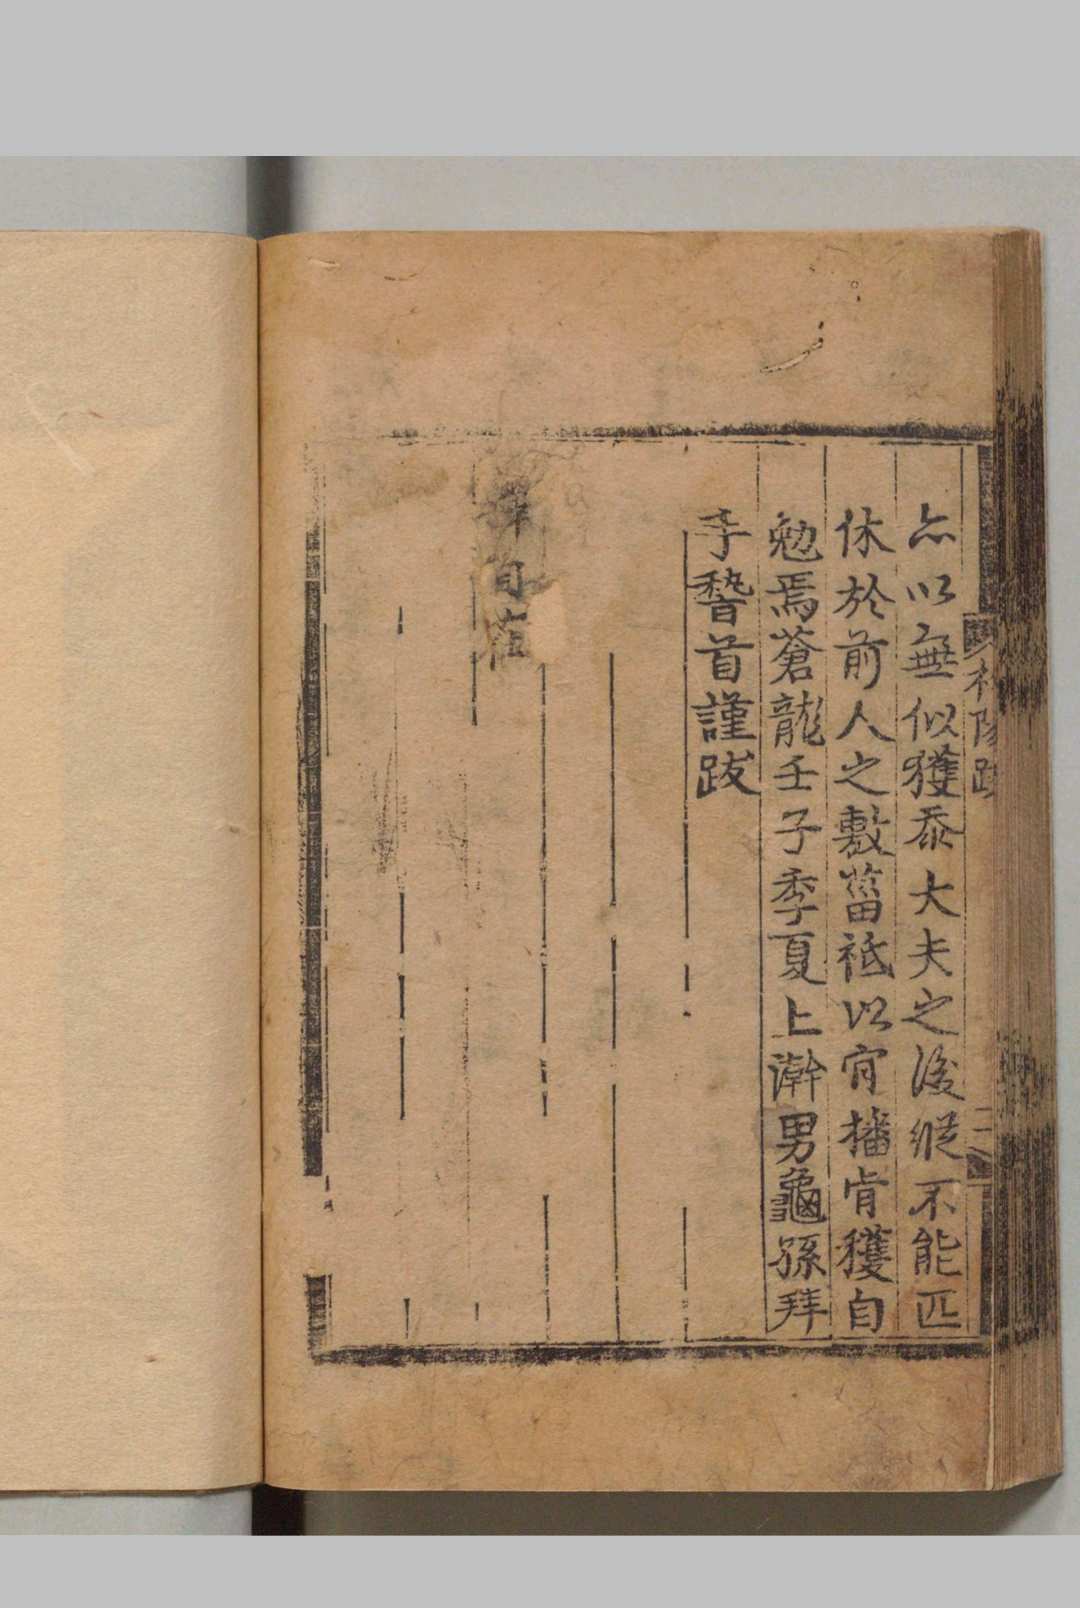 亦以無似獲忝大夫之後縱不能匹
休於前人之敷菑祗以肯播肯穫自
勉焉蒼龍壬子季夏上澣男龜孫拜
手稽首謹跋
自在
跋
二